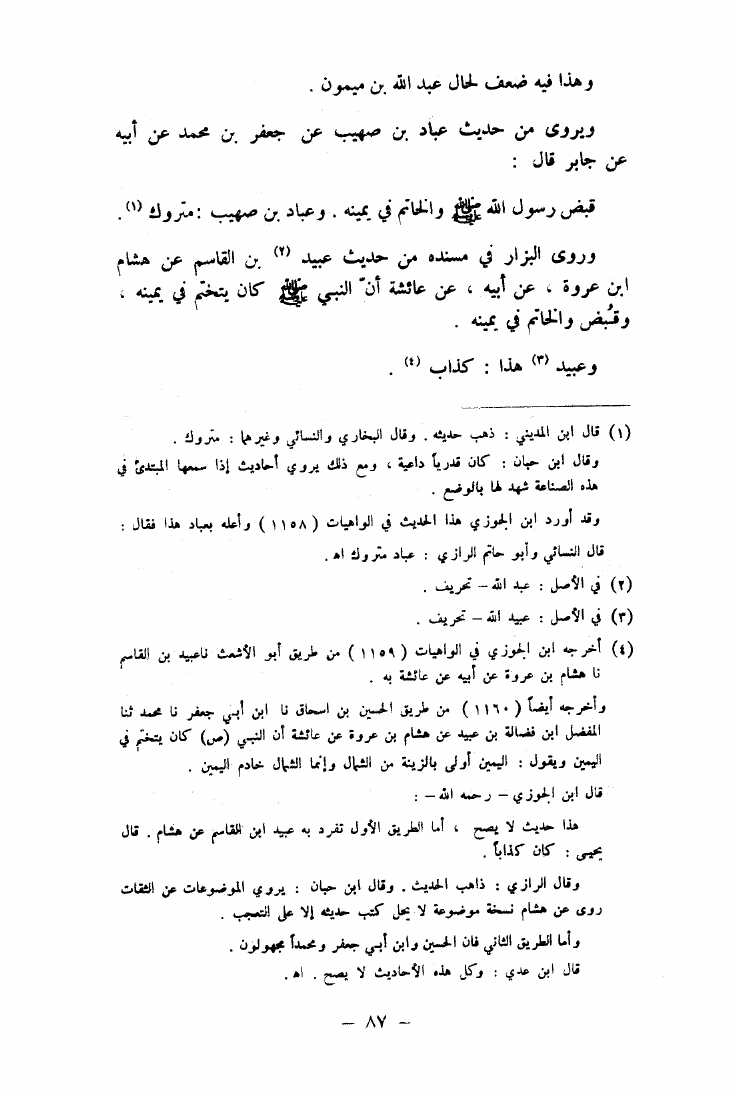 وهذا فيه ضعف لحال عبد الله بن ميمون .
ويروى من حديث عباد بن صهيب عن جعفر بن محمد عن أبيه
عن جابر قال :
قبض رسول الله ﷺ والخاتم في يمينه . وعباد بن صهيب : متروك (١) .
وروى البزار في مسنده من حديث عبيد (٢) بن القاسم عن هشام
ابن عروة ، عن أبيه ، عن عائشة أنّ النبي ﷺ كان يتختّم في يمينه ،
وقُبض والخاتم في يمينه .
وعبيد (٣) هذا : كذاب (٤) .
(١) قال ابن المديني : ذهب حديثه . وقال البخاري والنسائي وغيرهما : متروك .
وقال ابن حبان : كان قدرياً داعية ، ومع ذلك يروي أحاديث إذا سمعها المبتدئ في
هذه الصناعة شهد لها بالوضع .
وقد أورد ابن الجوزي هذا الحديث في الواهيات ( ١١٥٨ ) وأعله بعباد هذا فقال :
قال النسائي وأبو حاتم الرازي : عباد متروك اه .
(٢) في الأصل : عبد الله – تحريف .
(٣) في الأصل : عبيد الله – تحريف .
(٤) أخرجه ابن الجوزي في الواهيات ( ١١٥٩ ) من طريق أبو الأشعث ناعبيد بن القاسم
نا هشام بن عروة عن أبيه عن عائشة به .
وأخرجه أيضاً ( ١١٦٠ ) من طريق الحسين بن اسحاق نا ابن أبي جعفر نا محمد ثنا
المفضل ابن فضالة بن عبيد عن هشام بن عروة عن عائشة أن النبي (ص) كان يتختم في
اليمين ويقول : اليمين أولى بالزينة من الشمال وإنما الشمال خادم اليمين .
قال ابن الجوزي – رحمه الله – :
هذا حديث لا يصح ، أما الطريق الأول تفرد به عبيد ابن القاسم عن هشام . قال
يحيى : كان كذاباً .
وقال الرازي : ذاهب الحديث . وقال ابن حبان : يروي الموضوعات عن الثقات
روى عن هشام نسخة موضوعة لا يحل كتب حديثه إلا على التعجب .
وأما الطريق الثاني فان الحسين وابن أبي جعفر ومحمداً مجهولون .
قال ابن عدي : وكل هذه الأحاديث لا يصح . اه .
– ٨٧ –